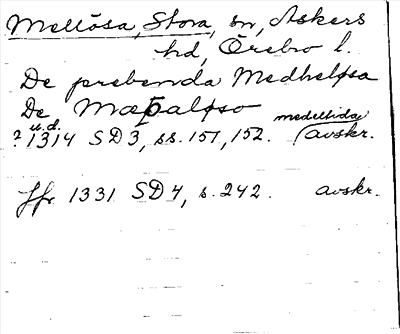 Mellösa, Stora, sn, Askers
hd, Örebro l.
De prebenda Medhelpsa
De Mæþaløso
u.d. medeltida
? 1314 SD3, ss. 151, 152. avskr.
Jfr 1331 SD4, s. 242. avskr.